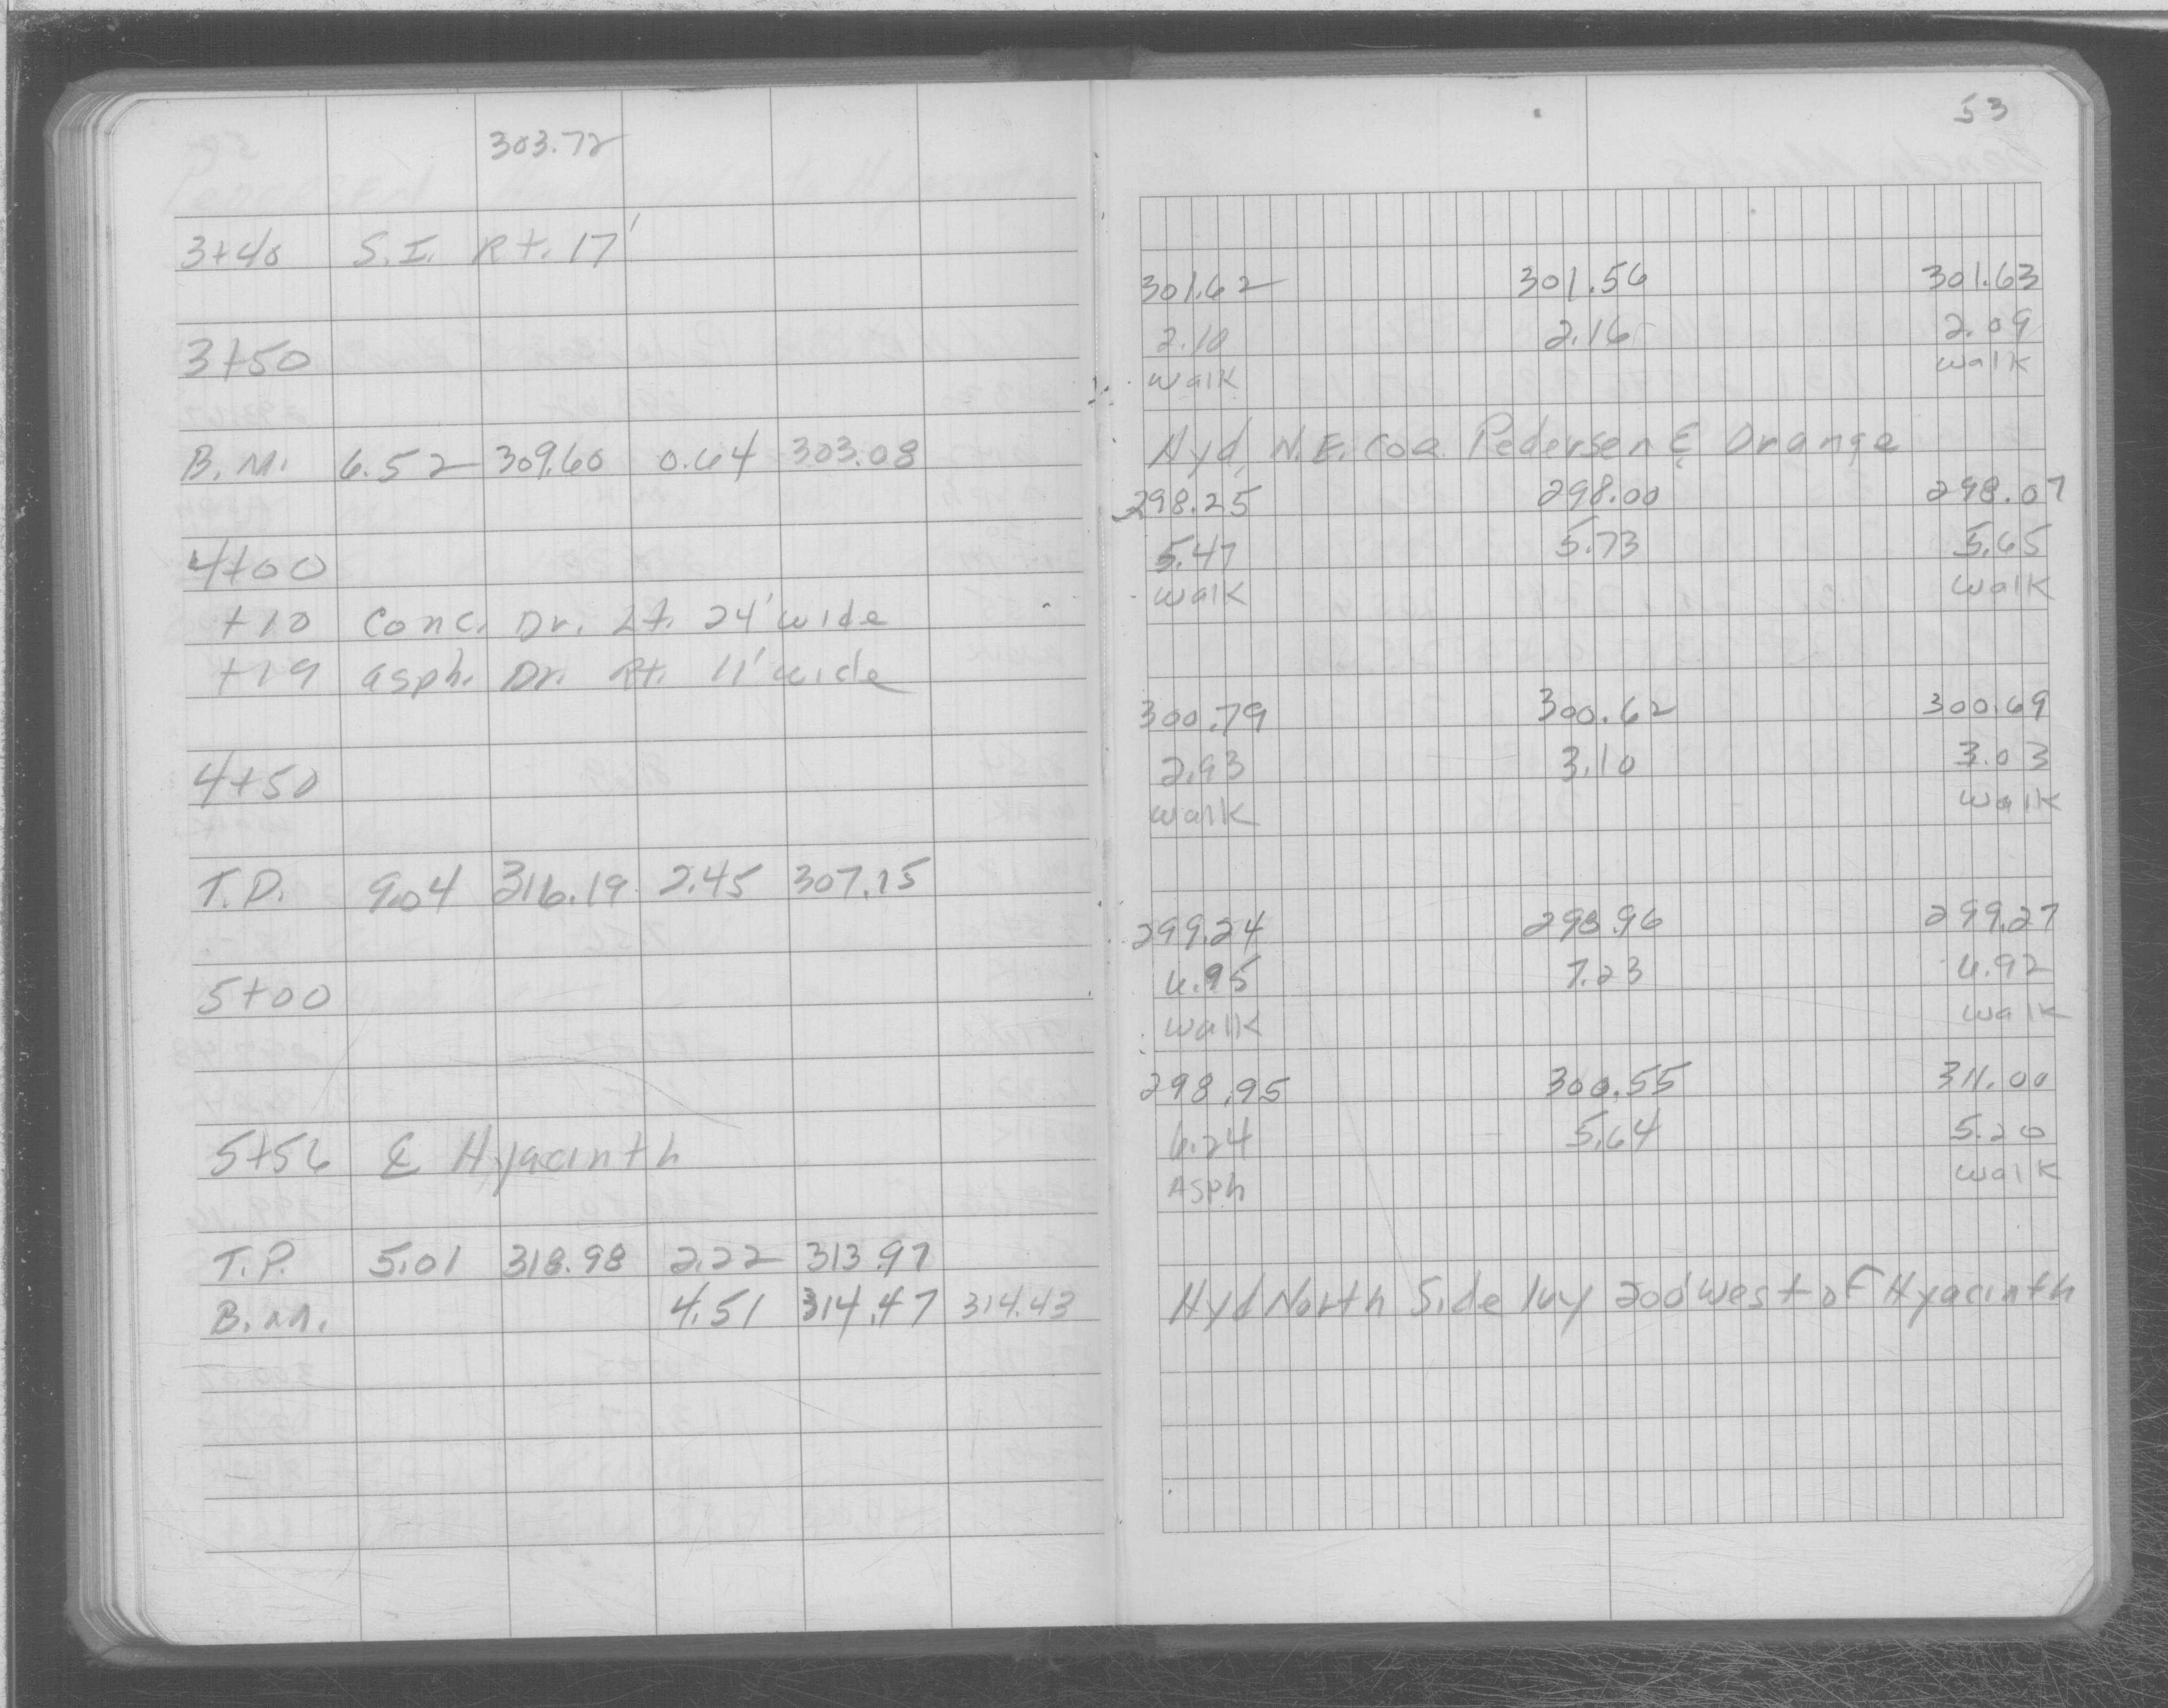 303.72
3+40 S.I. Rt. 17'
3+50
B.M. 6.52 309.60 0.64 303.08
4+00
+10 Conc. Dr. Lt. 24' wide
+19 asph. Dr. Rt. 11' wide
4+50
T.P. 9.04 316.19 2.45 307.15
5+00
5+56 ℄ Hyacinth
T.P. 5.01 318.98 2.22 313.97
B.M. 4.51 314.47 314.43
53
301.62 301.56 301.63
2.10 2.16 2.09
walk walk
Hyd. N.E. Cor. Pedersen & Orange
298.25 298.00 298.07
5.47 5.73 5.65
walk walk
300.79 300.62 300.69
2.93 3.10 3.03
walk walk
299.24 298.96 299.27
6.95 7.23 6.92
walk walk
298.95 300.55 311.00
6.24 5.64 5.20
Asph walk
Hyd North Side Ivy 200' west of Hyacinth